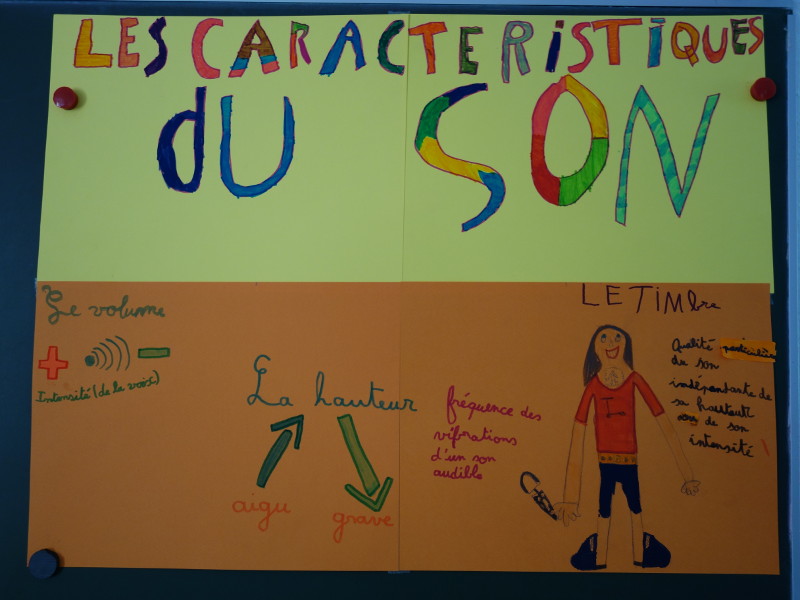 LES CARACTERISTIQUES
dU SON
Le volume
Intensité (de la voix)
La hauteur
aigu
grave
fréquence des
vibrations
d'un son
audible
LE TIMbre
Qualité particulière
du son
indépendante de
sa hauteur
ou de son
intensité